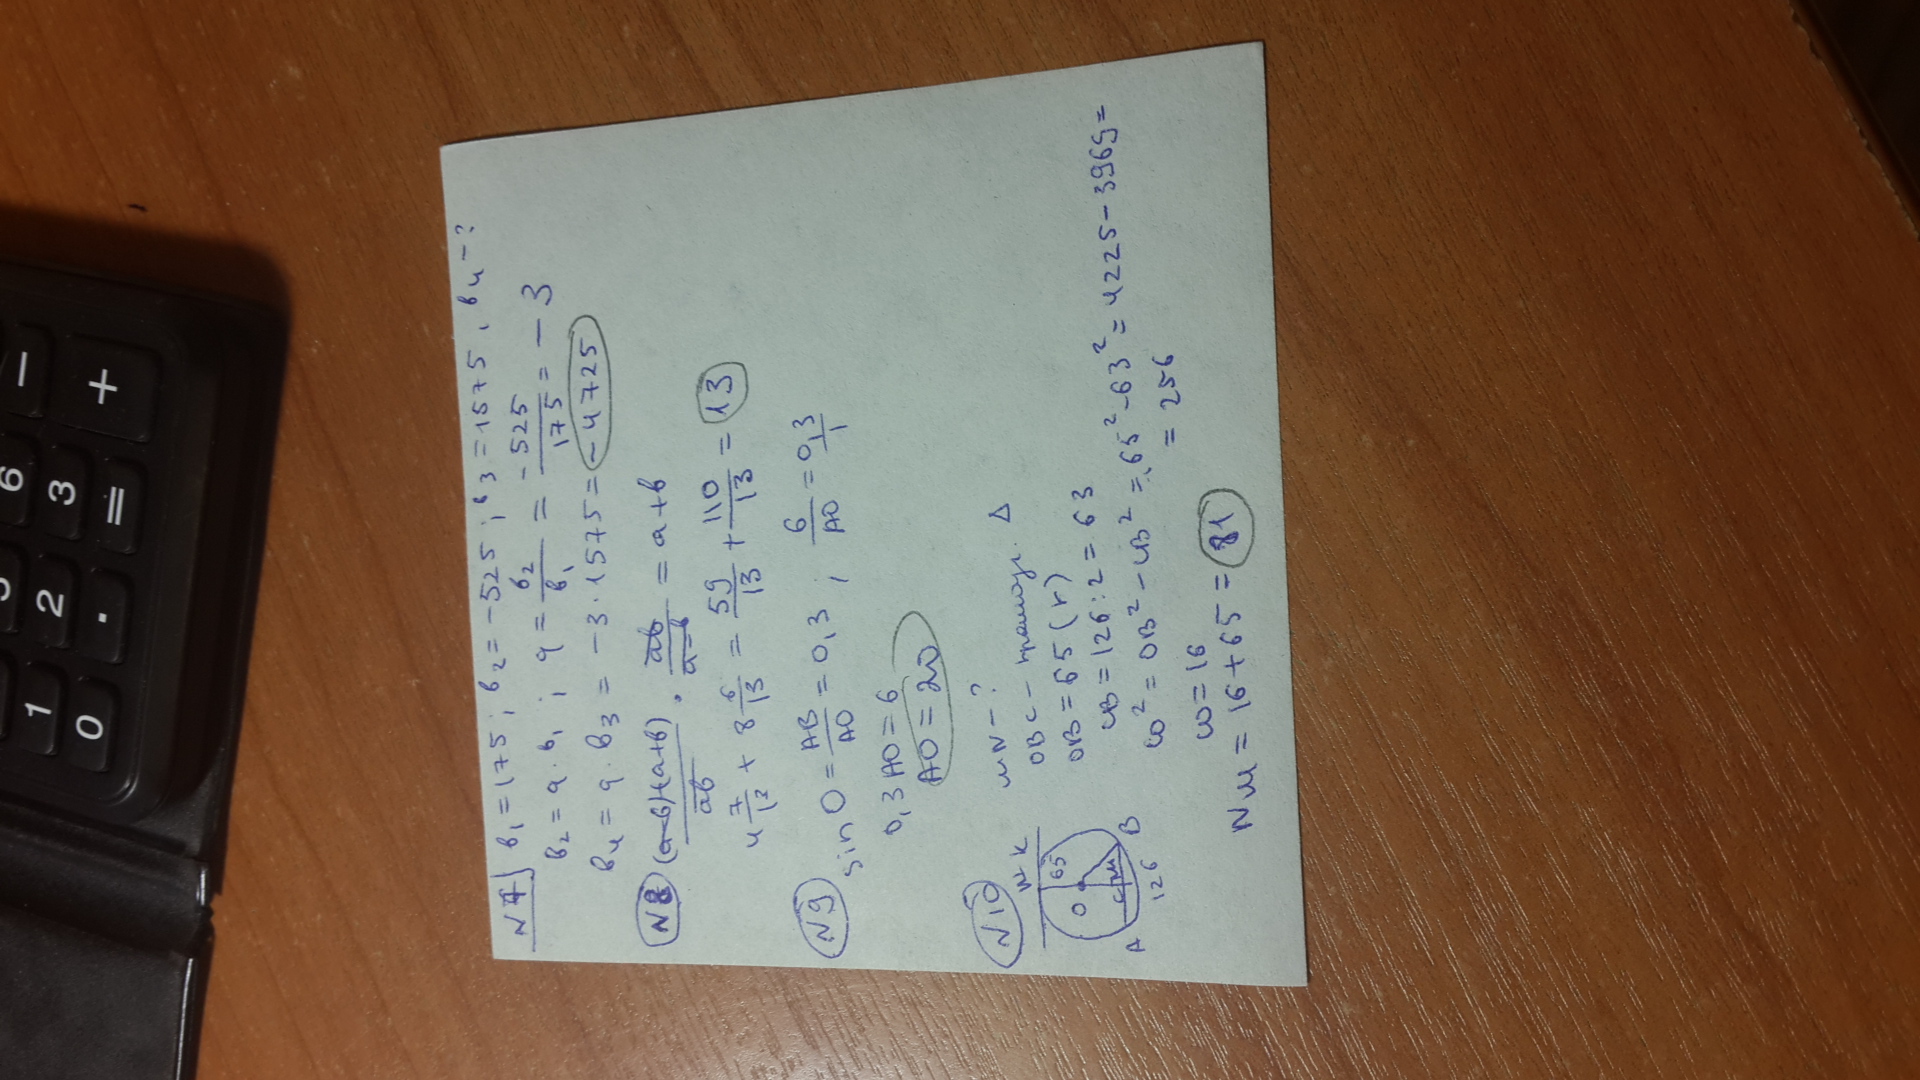 N7 b₁ = 175; b₂ = -525; b₃ = 1575, b₄ - ?
b₂ = q · b₁; q = b₂/b₁ = -525/175 = -3
b₄ = q · b₃ = -3 · 1575 = -4725
N8 (a-b)(a+b)/ab · ab/a-b = a+b
4 7/13 + 8 6/13 = 59/13 + 110/13 = 13
N9 sin O = AB/AO = 0,3; 6/AO = 0,3/1
0,3 AO = 6
AO = 20
N10 K
65
O
A B
126
MN - ?
OBC - прямоуг. Δ
OB = 65 (r)
CB = 126 : 2 = 63
CO² = OB² - CB² = 65² - 63² = 4225 - 3969 =
= 256
CO = 16
NM = 16 + 65 = 81
- +
6
3 =
2 .
1 0